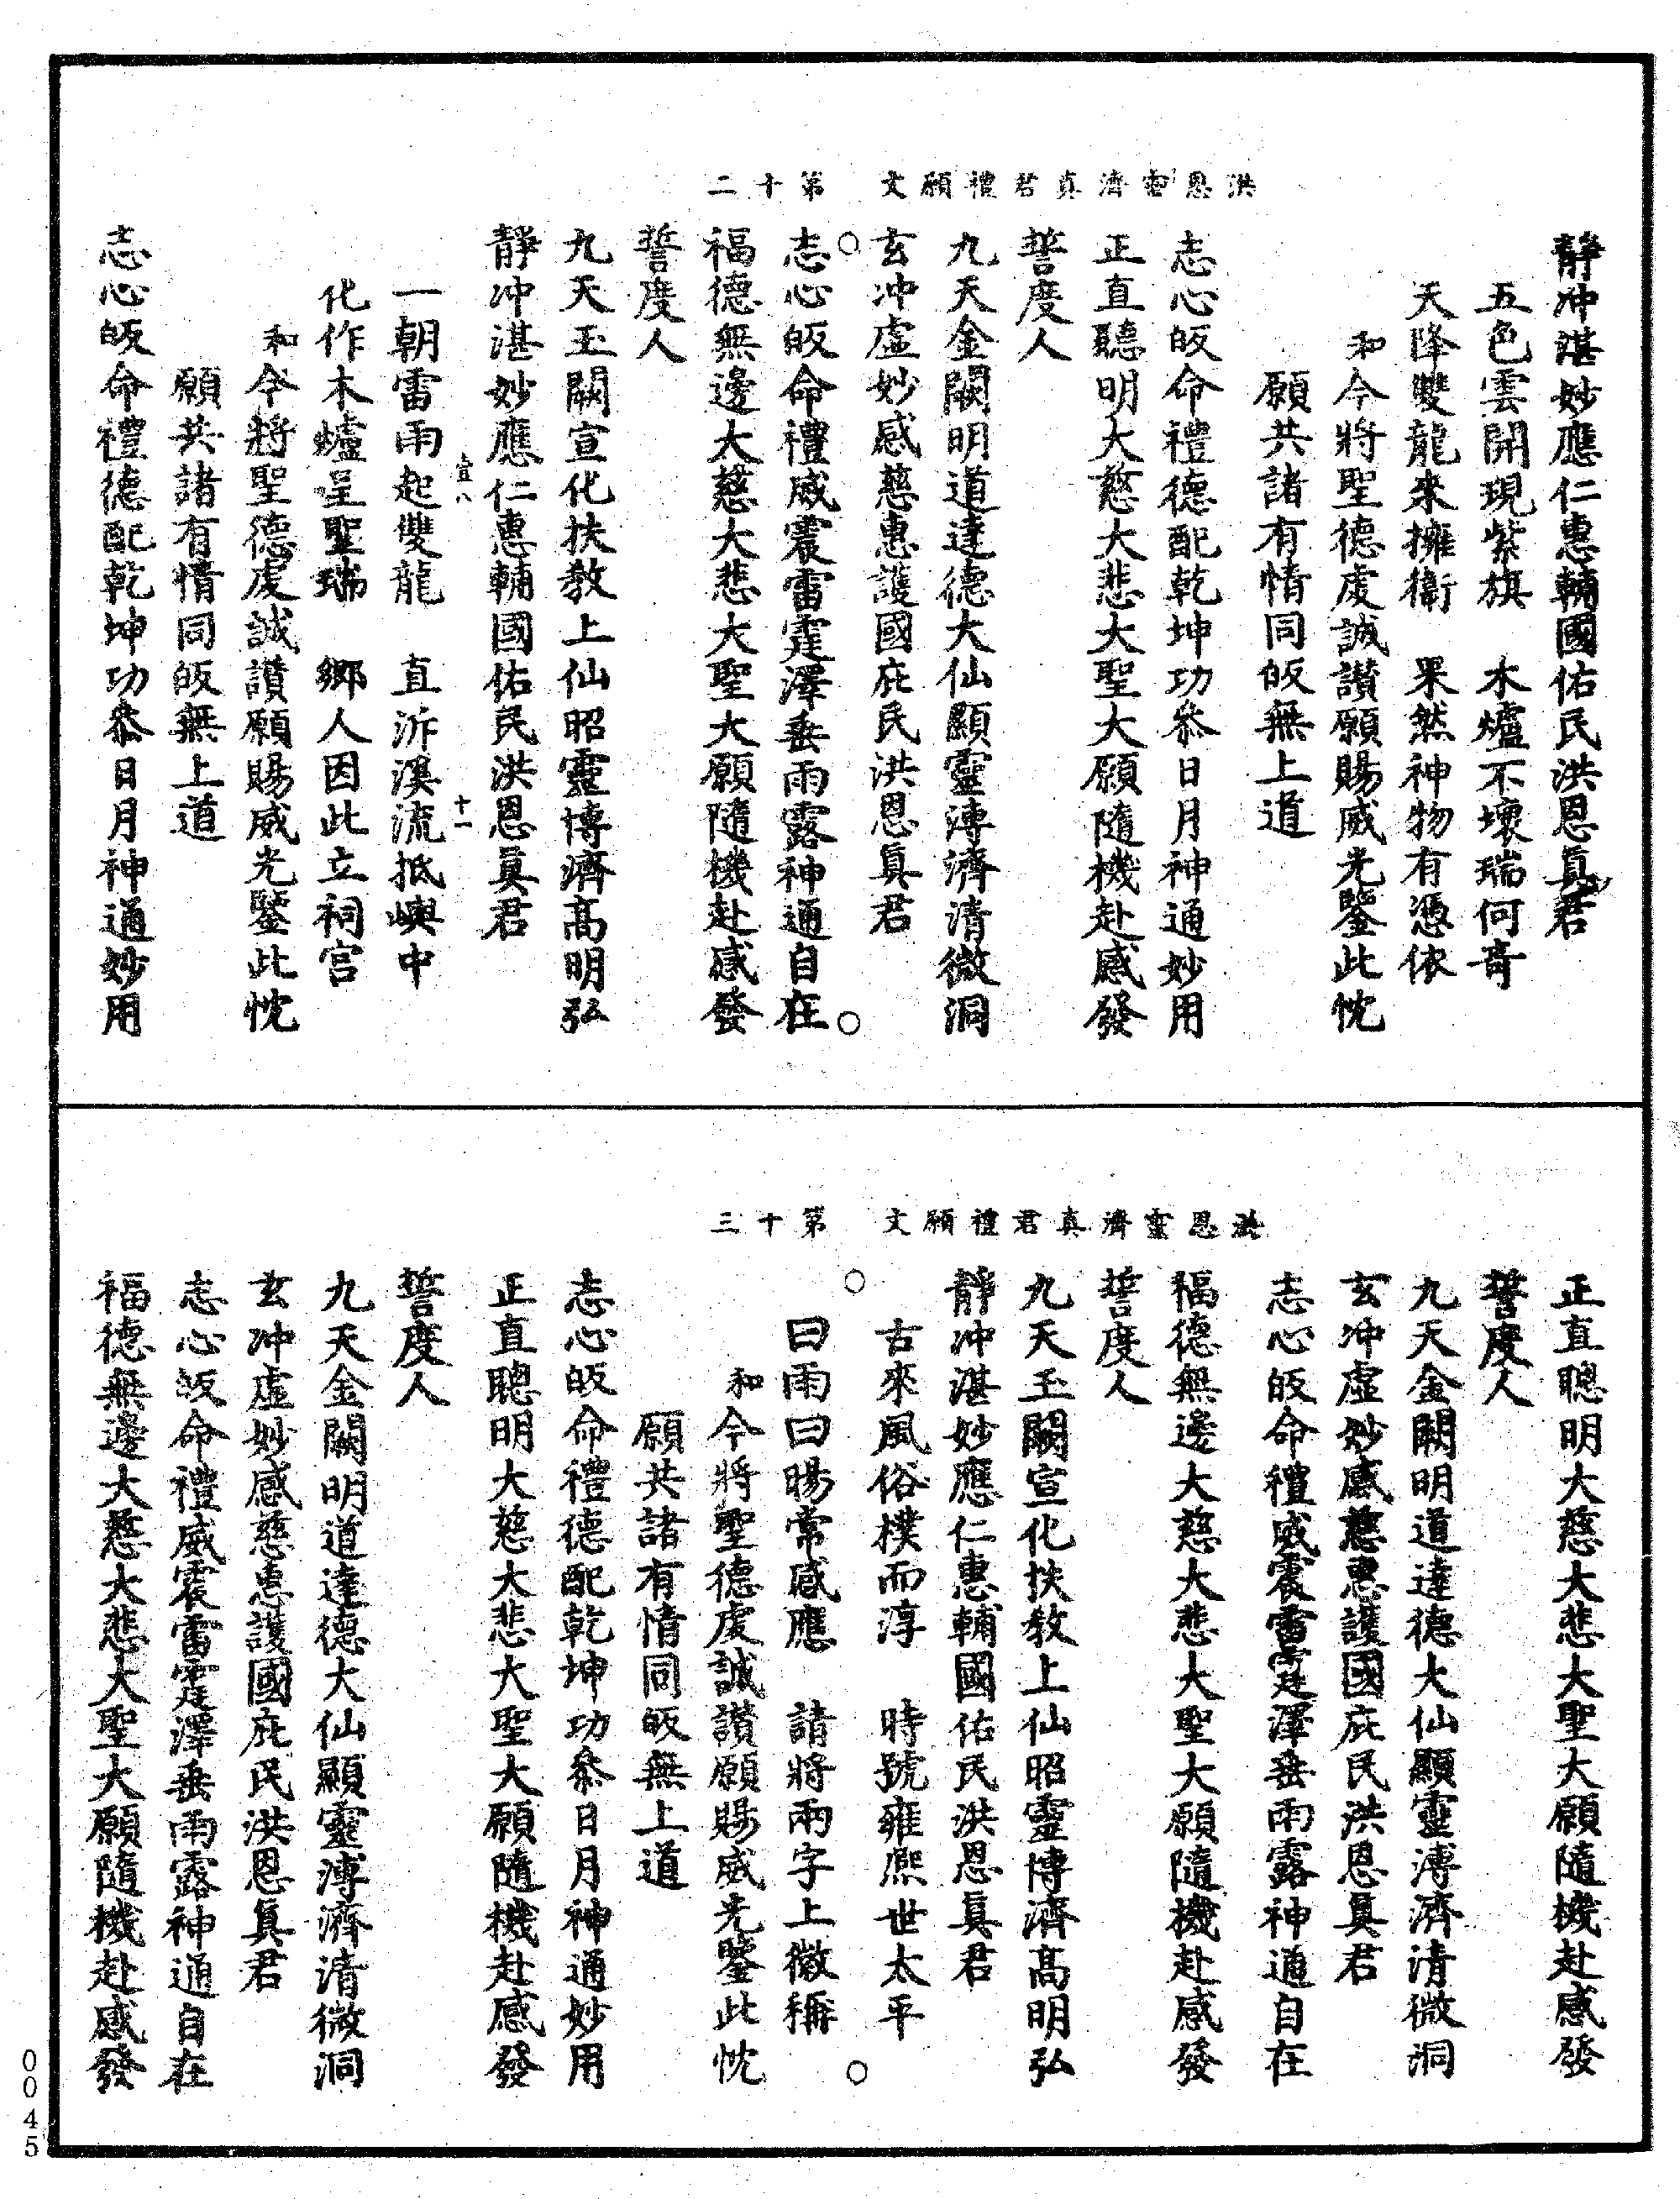 洪恩靈濟真君禮願文　第十二
靜冲湛妙應仁惠輔國佑民洪恩眞君
五色雲開現紫旗　木爐不壞瑞何竒
天降雙龍來擁衛　果然神物有憑依
和今將聖德虔誠讃願賜威光鑒此忱
願共諸有情同皈無上道
志心皈命禮德配乾坤功叅日月神通妙用
正直聽明大慈大悲大聖大願隨機赴感發
誓度人
九天金闕明道達德大仙顯靈溥濟清微洞
玄冲虛妙感慈惠護國庇民洪恩眞君
志心皈命禮威震雷霆澤垂雨露神通自在
福德無邊大慈大悲大聖大願隨機赴感發
誓度人
九天玉闕宣化扶教上仙昭靈博濟高明弘
靜冲湛妙應仁惠輔國佑民洪恩眞君
壹八　十一
一朝雷雨起雙龍　直泝溪流抵嶼中
化作木爐呈聖瑞　鄉人因此立祠宫
和今將聖德虔誠讃願賜威光鑒此忱
願共諸有情同皈無上道
志心皈命禮德配乾坤功叅日月神通妙用
洪恩靈濟真君禮願文　第十三
正直聰明大慈大悲大聖大願隨機赴感發
誓度人
九天金闕明道達德大仙顯靈溥濟清微洞
玄冲虛妙感慈惠護國庇民洪恩眞君
志心皈命禮威震雷霆澤垂雨露神通自在
福德無邊大慈大悲大聖大願隨機赴感發
誓度人
九天玉闕宣化扶教上仙昭靈博濟高明弘
靜冲湛妙應仁惠輔國佑民洪恩眞君
古來風俗樸而淳　時號雍熈世太平
曰雨曰暘常感應　請將兩字上徽稱
和今將聖德虔誠讃願賜威光鑒此忱
願共諸有情同皈無上道
志心皈命禮德配乾坤功叅日月神通妙用
正直聰明大慈大悲大聖大願隨機赴感發
誓度人
九天金闕明道達德大仙顯靈溥濟清微洞
玄冲虛妙感慈惠護國庇民洪恩眞君
志心皈命禮威震雷霆澤垂雨露神通自在
福德無邊大慈大悲大聖大願隨機赴感發
0045